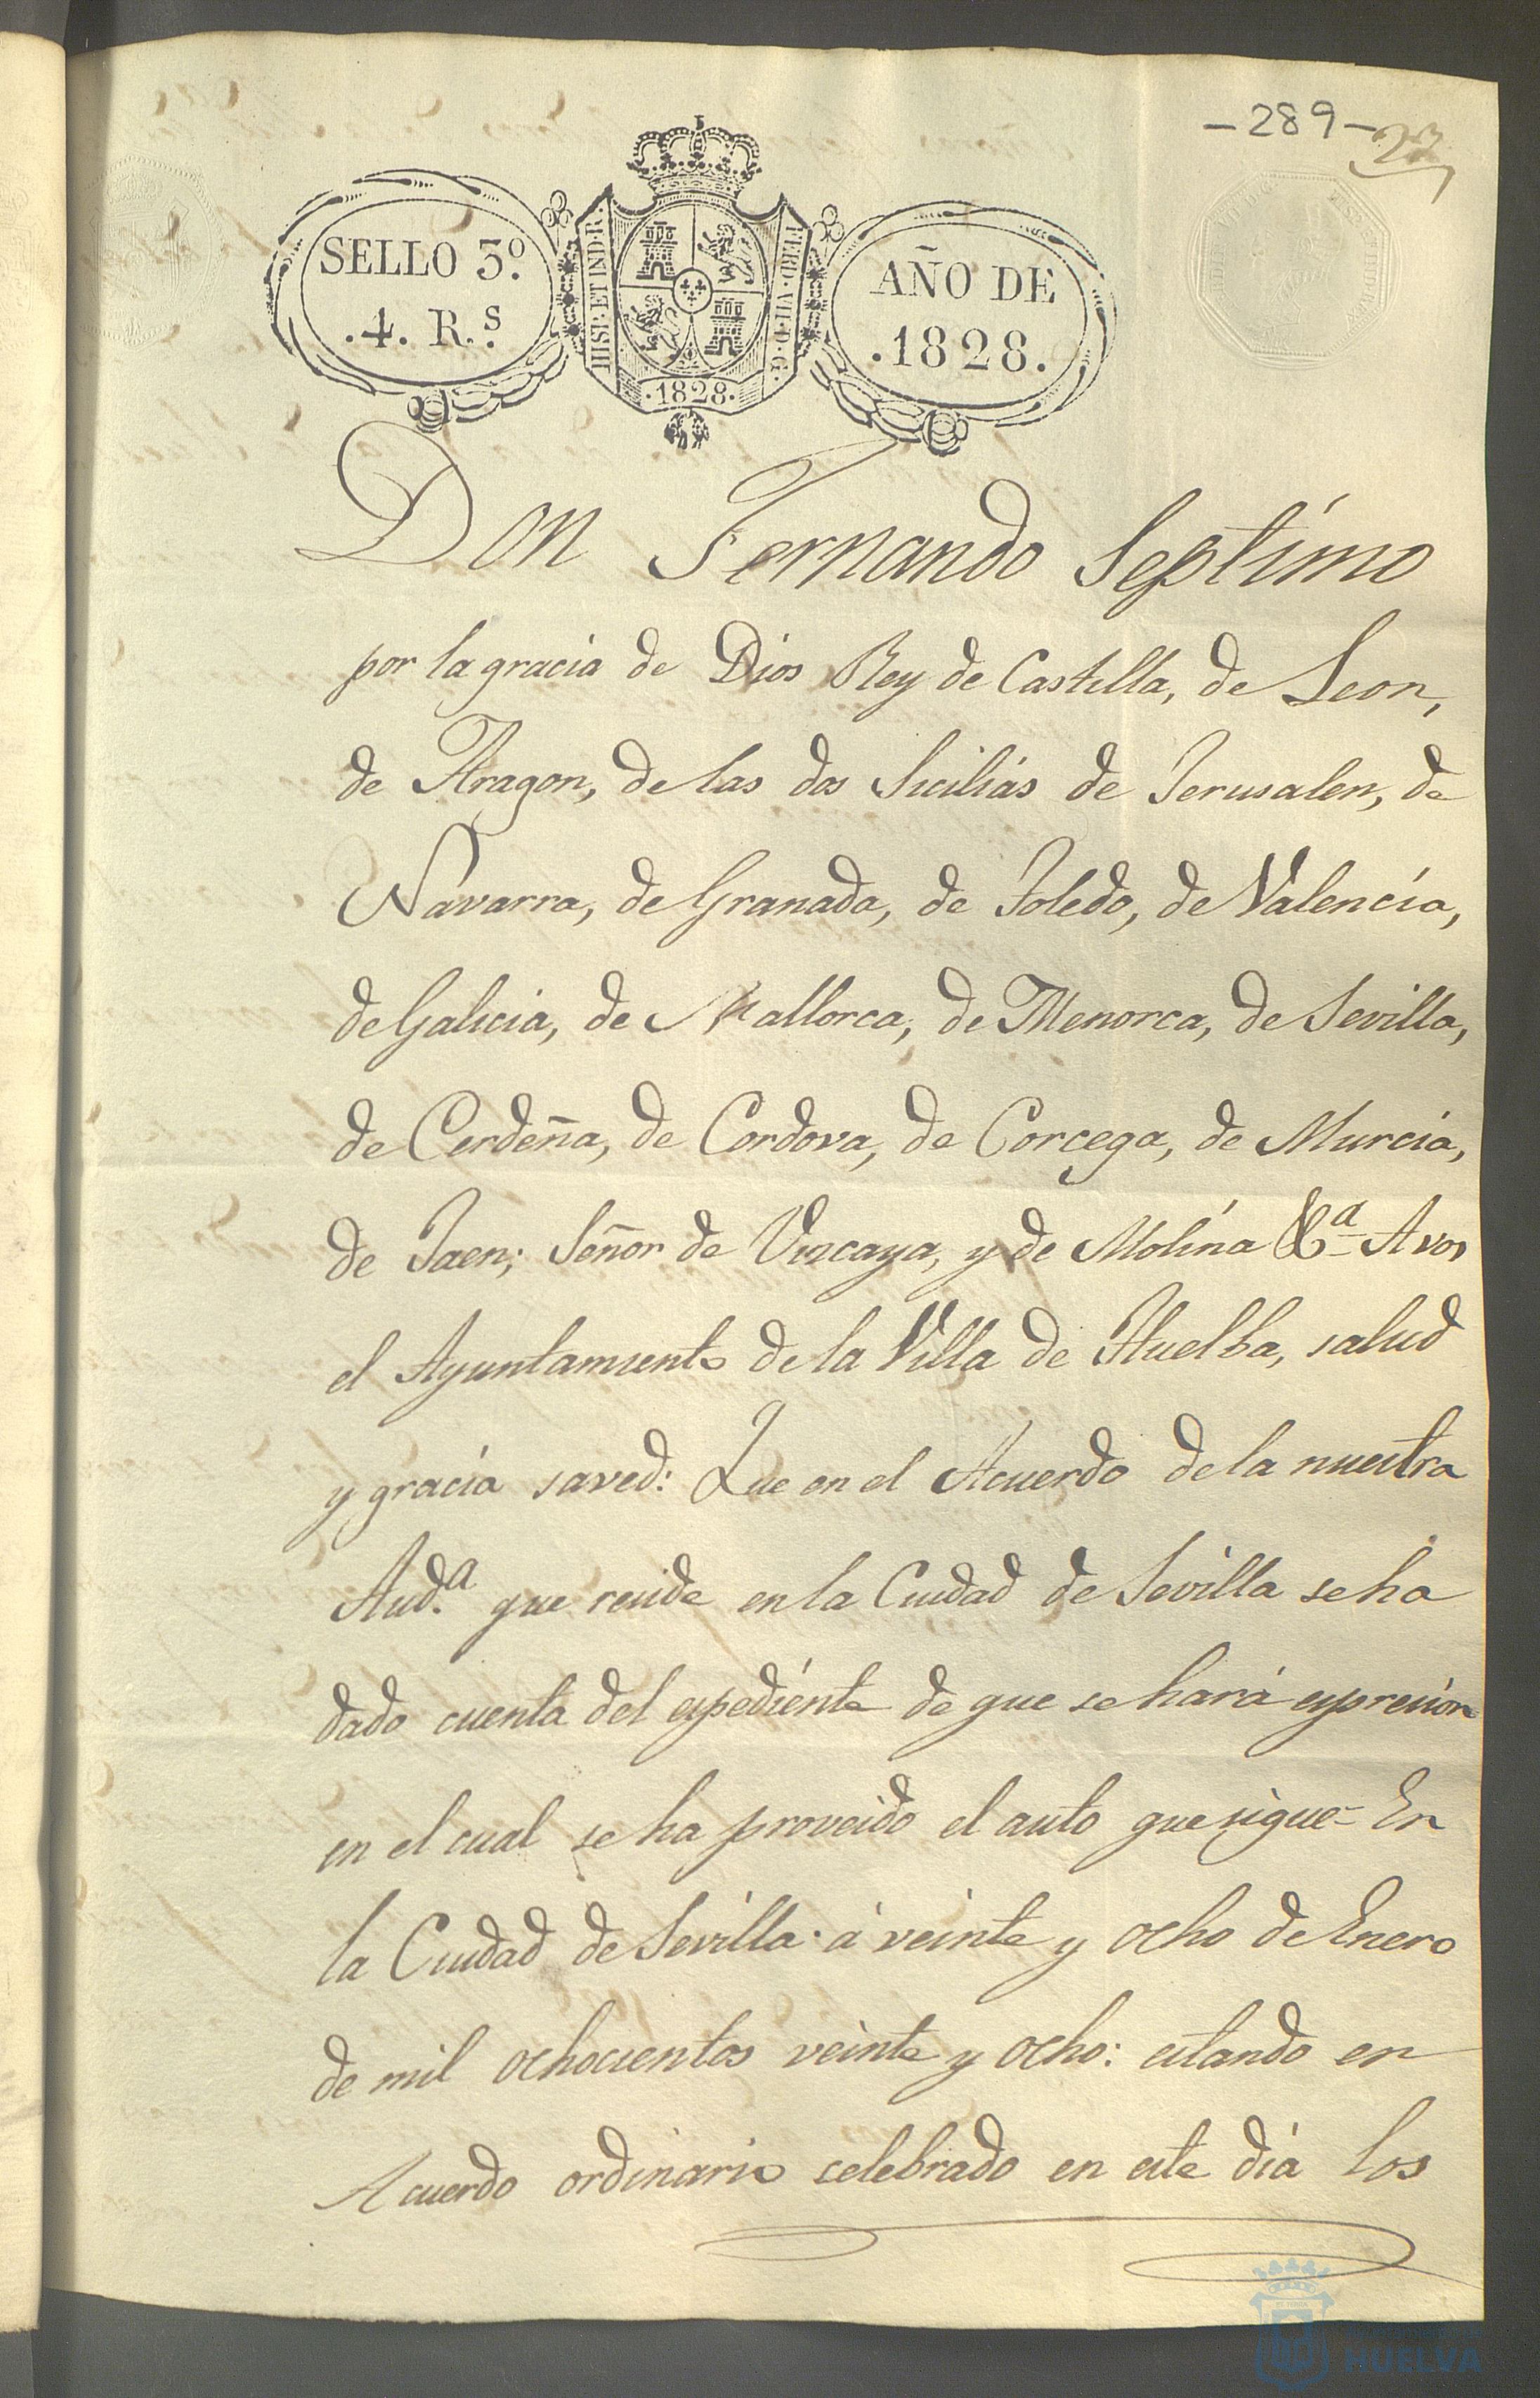 -289-
23
SELLO 3º.
.4. R.s
HISP. ET IND. R.
FERD. VII. D. G.
.1828.
AÑO DE
.1828.
Don Fernando Septimo
por la gracia de Dios Rey de Castilla, de Leon,
de Aragon, de las dos Sicilias de Jerusalen, de
Navarra, de Granada, de Toledo, de Valencia,
de Galicia, de Mallorca, de Menorca, de Sevilla,
de Cerdeña, de Cordova, de Corcega, de Murcia,
de Jaen; Señor de Vizcaya, y de Molina &ª A vos
el Ayuntamiento de la Villa de Huelba, salud
y gracia saved: Que en el Acuerdo de la nuestra
Aud.ª que reside en la Ciudad de Sevilla se ha
dado cuenta del espediente de que se hará espresion
en el cual se ha proveido el auto que sigue = En
la Ciudad de Sevilla á veinte y ocho de Enero
de mil ochocientos veinte y ocho: estando en
Acuerdo ordinario celebrado en este dia los
HUELVA